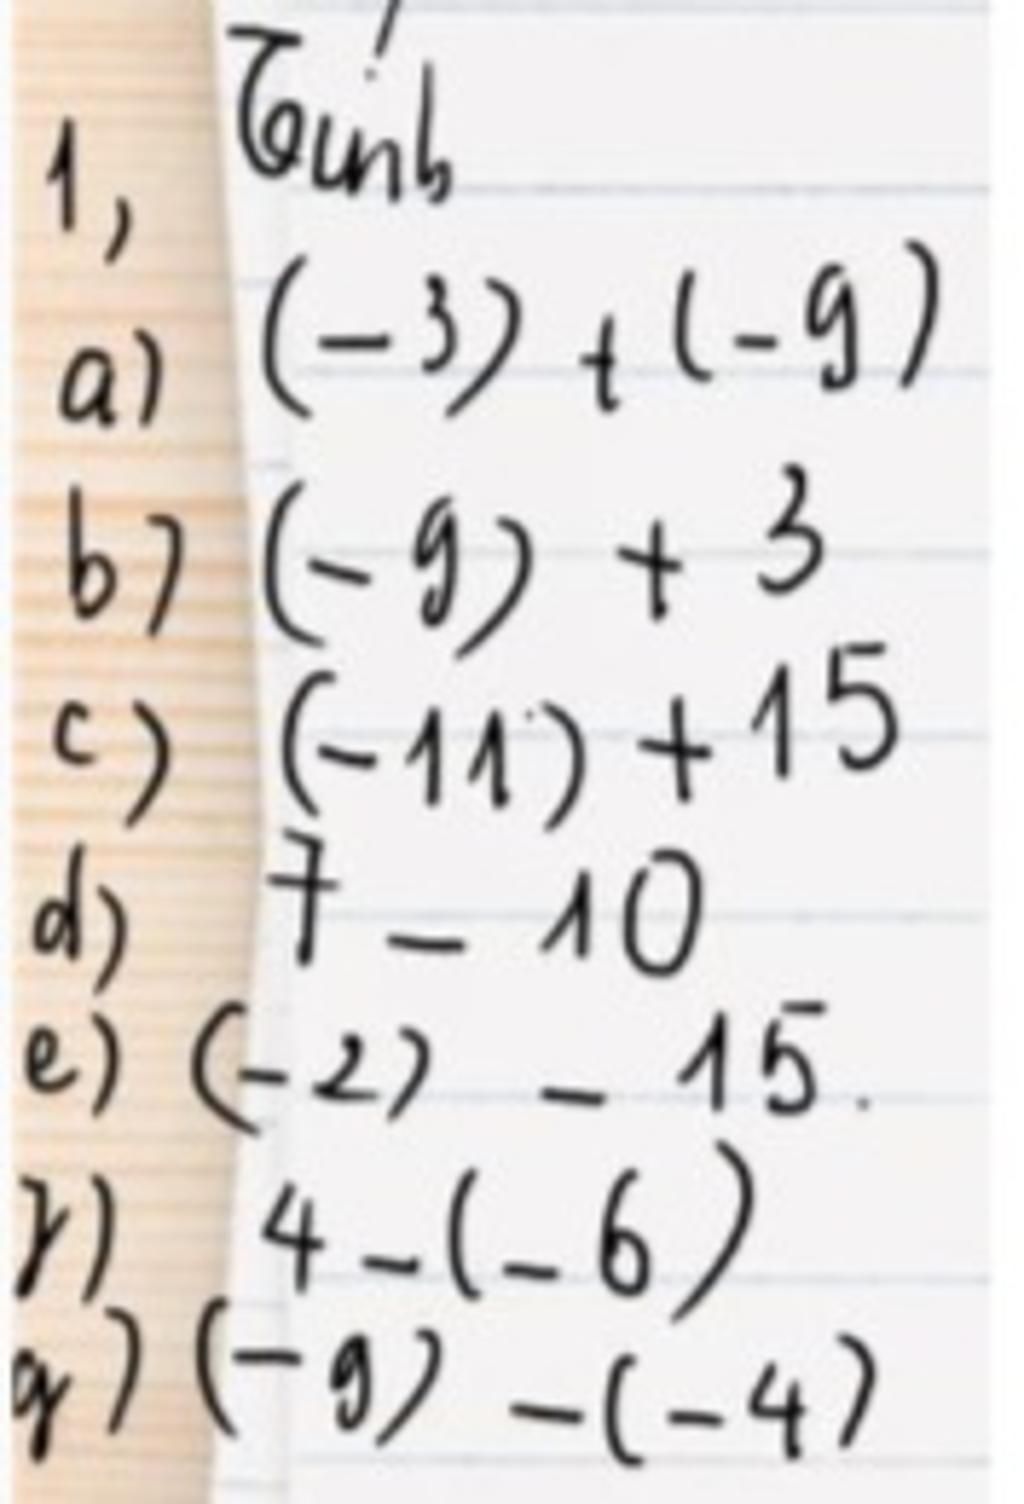 1, Tính
a) (-3) + (-9)
b) (-9) + 3
c) (-11) + 15
d) 7 - 10
e) (-2) - 15.
f) 4 - (-6)
g) (-9) - (-4)